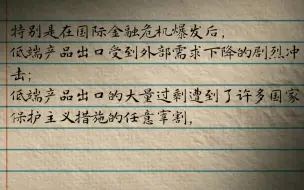 特别是在国际金融危机爆发后，
低端产品出口受到外部需求下降的剧烈冲
击；
低端产品出口的大量过剩遭到了许多国家
保护主义措施的任意宰割，